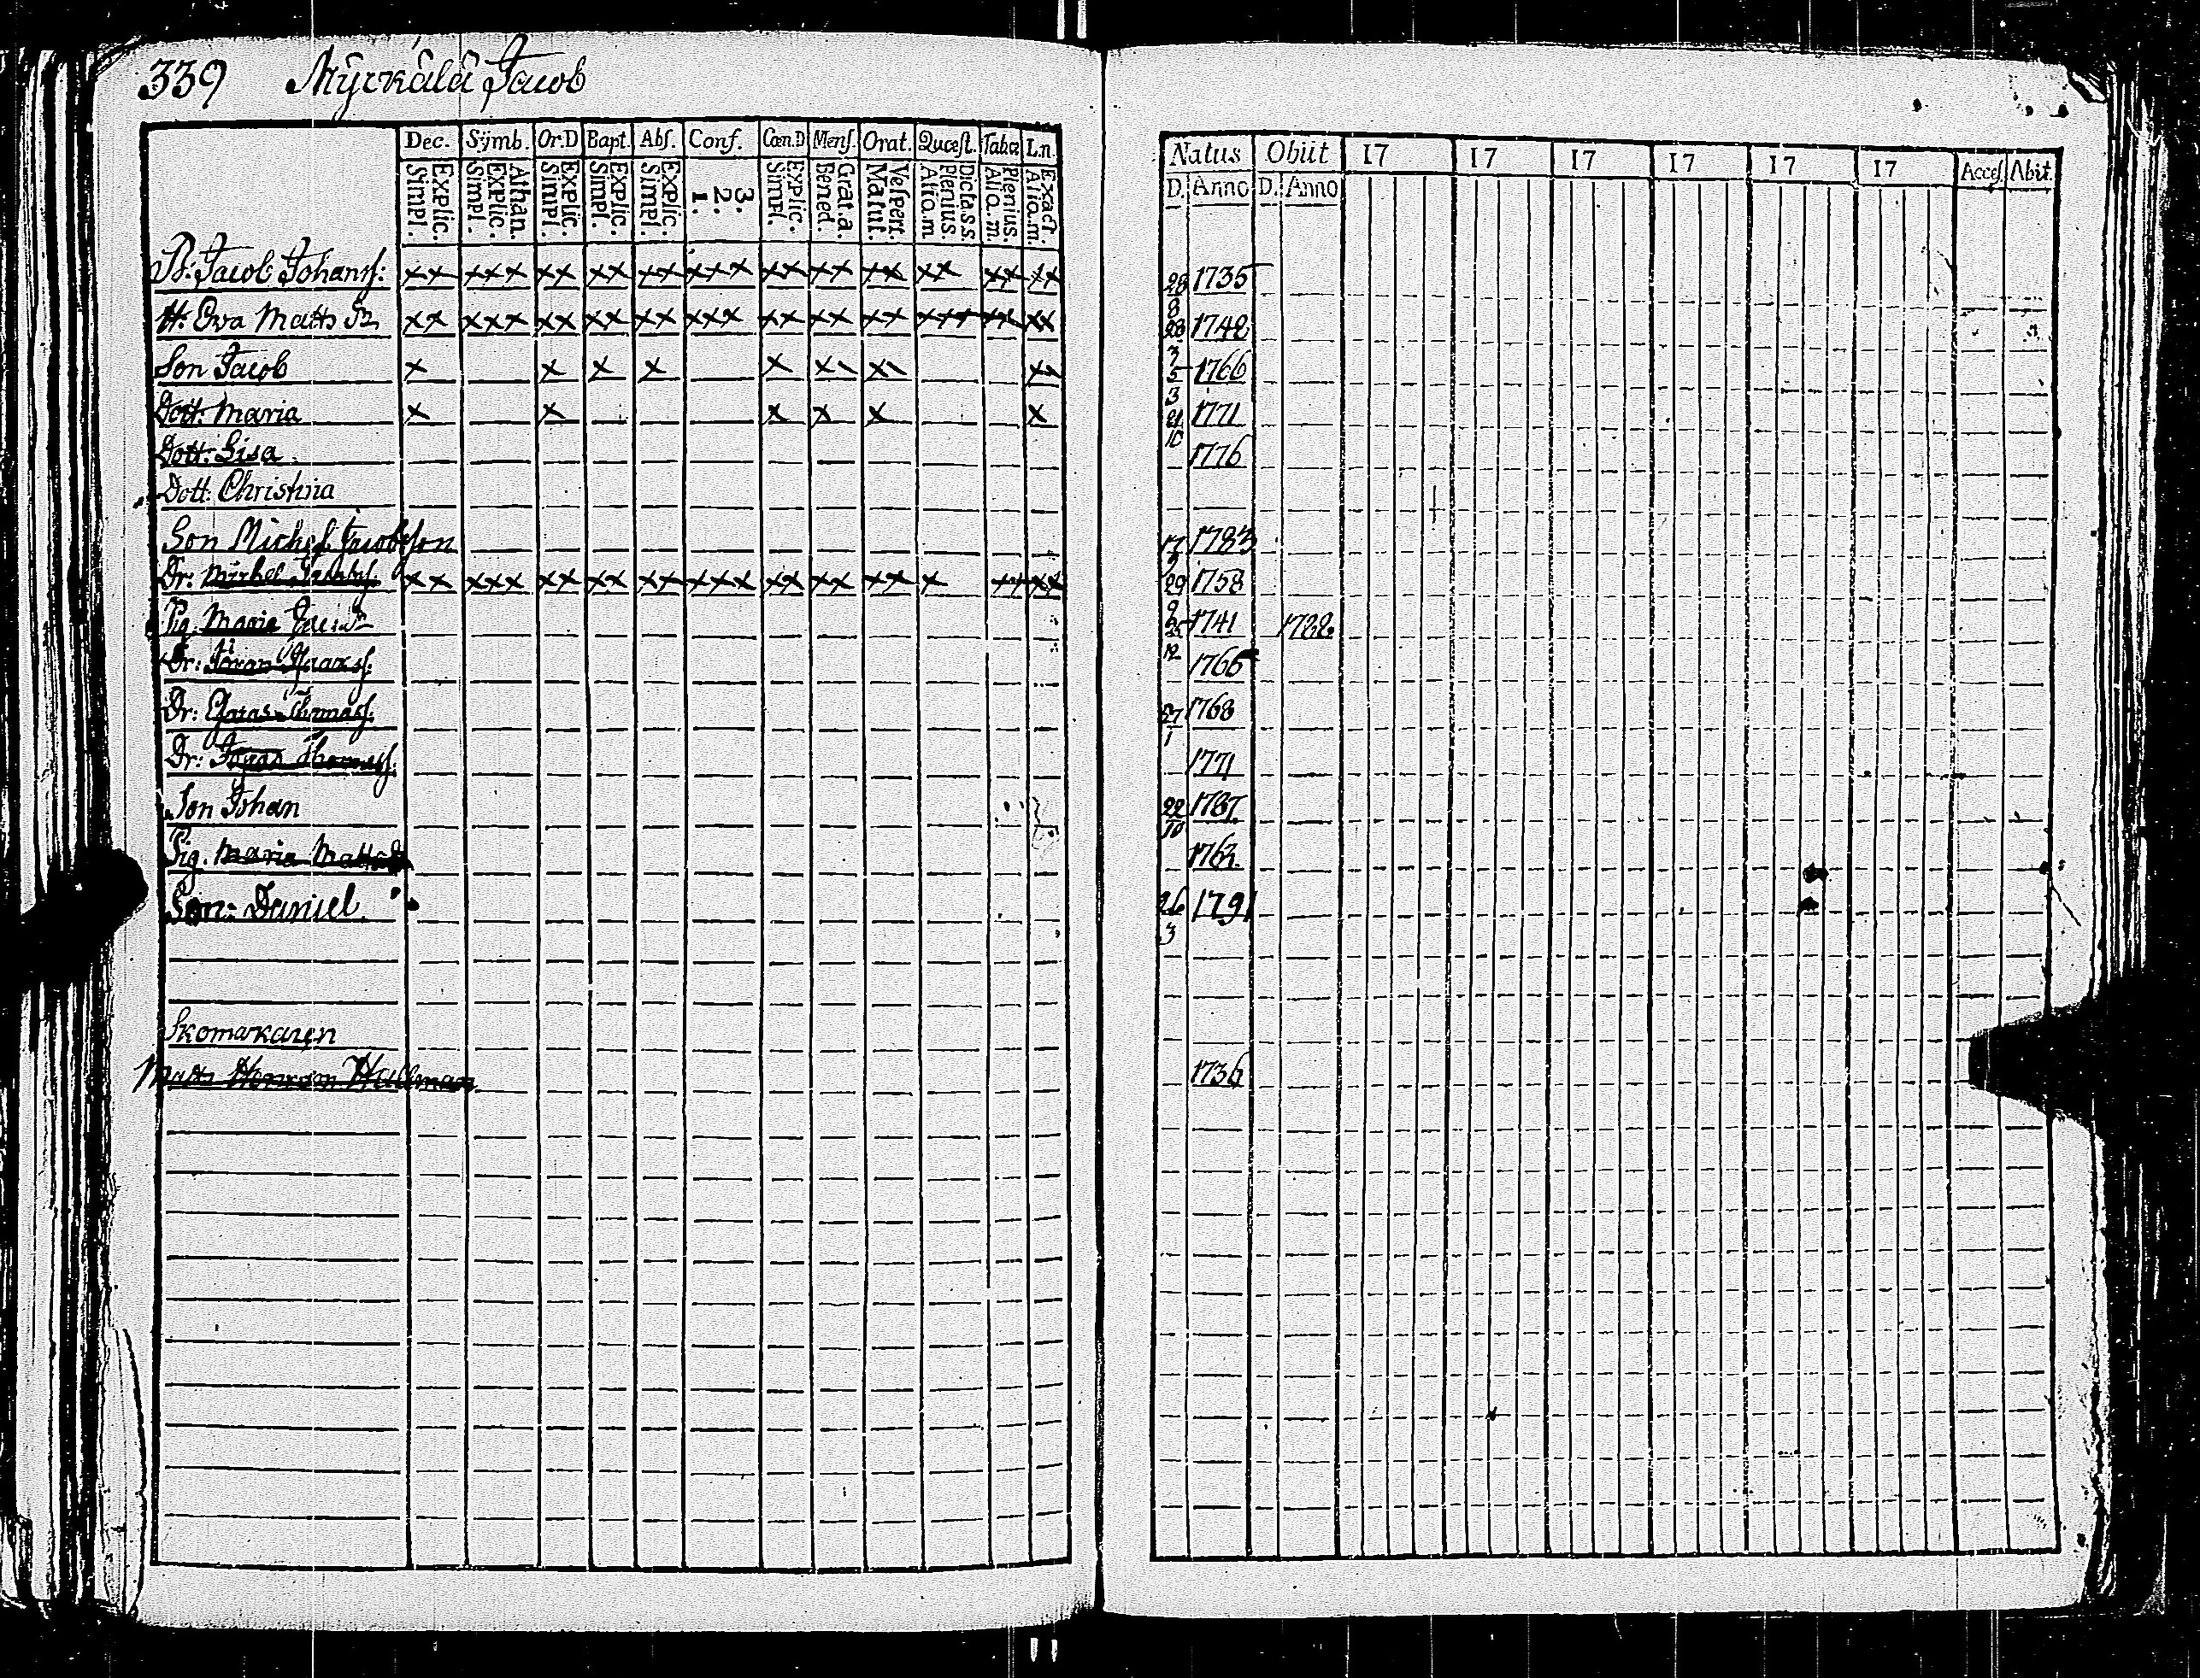 339 Myrkälä Jacob
Dec. Symb. Or.D Bapt. Abs. Conf. Cœn.D Mens. Orat. Quæst. Tabœ L.n.
Explic. Simpl. Athan. Explic. Simpl. Explic. Simpl. Explic. Simpl. Explic. Simpl. 3. 2. 1. Explic. Simpl. Grat.a. Bened. Vesper. Matut. Dicta.s.s. Plenius. Alio.m Plenius. Alio.m. Exact. Alio.m.
Natus Obiit 17 17 17 17 17 17 Acces. Abit.
D. Anno D. Anno
B: Jacob Johanss: xx xxx xx xx xx xxx xx xx xx xx xx xx 28 8 1735
H. Ewa Matts Dr xx xxx xx xx xx xxx xx xx xx xxx xx xx 28 1742
Son Jacob x x x x x x x 5 3 1766
Dott: Maria x x x x x x 21 10 1771
Dott: Lisa 1776
Dott: Christina
Son Michel Jacobsson 17 1783
Dr: Michel xx xxx xx xx xx xxx xx xx xx x xx xx 29 9 1758
Pig. Maria 25 12 1741 1788
Dr: Jöran 1766
Dr: Thomass. 27 1 1768
Dr: Thomass: 1771
Son Johan 22 10 1787
Pig. Maria Matts 1763
Son: Daniel 26 3 1791
Skomakaren
Matts Henrson Hallman 1736